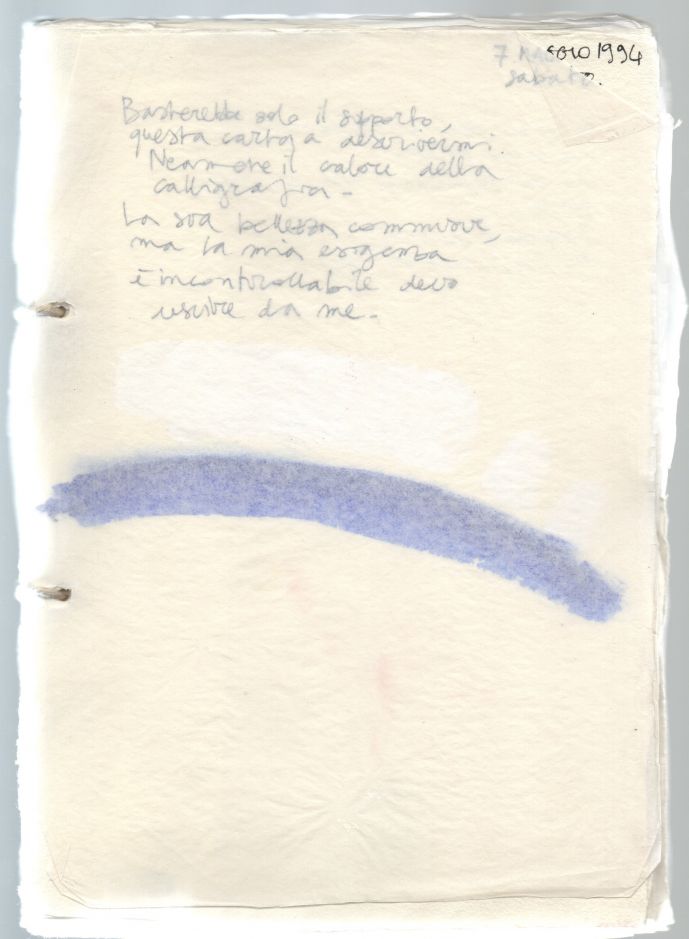 7 MAGGIO 1994
sabato.
Basterebbe solo il supporto,
questa carta a descrivermi.
Neanche il calore della
calligrafia -
La sua bellezza commuove,
ma la mia esigenza
è incontrollabile devo
uscire da me -